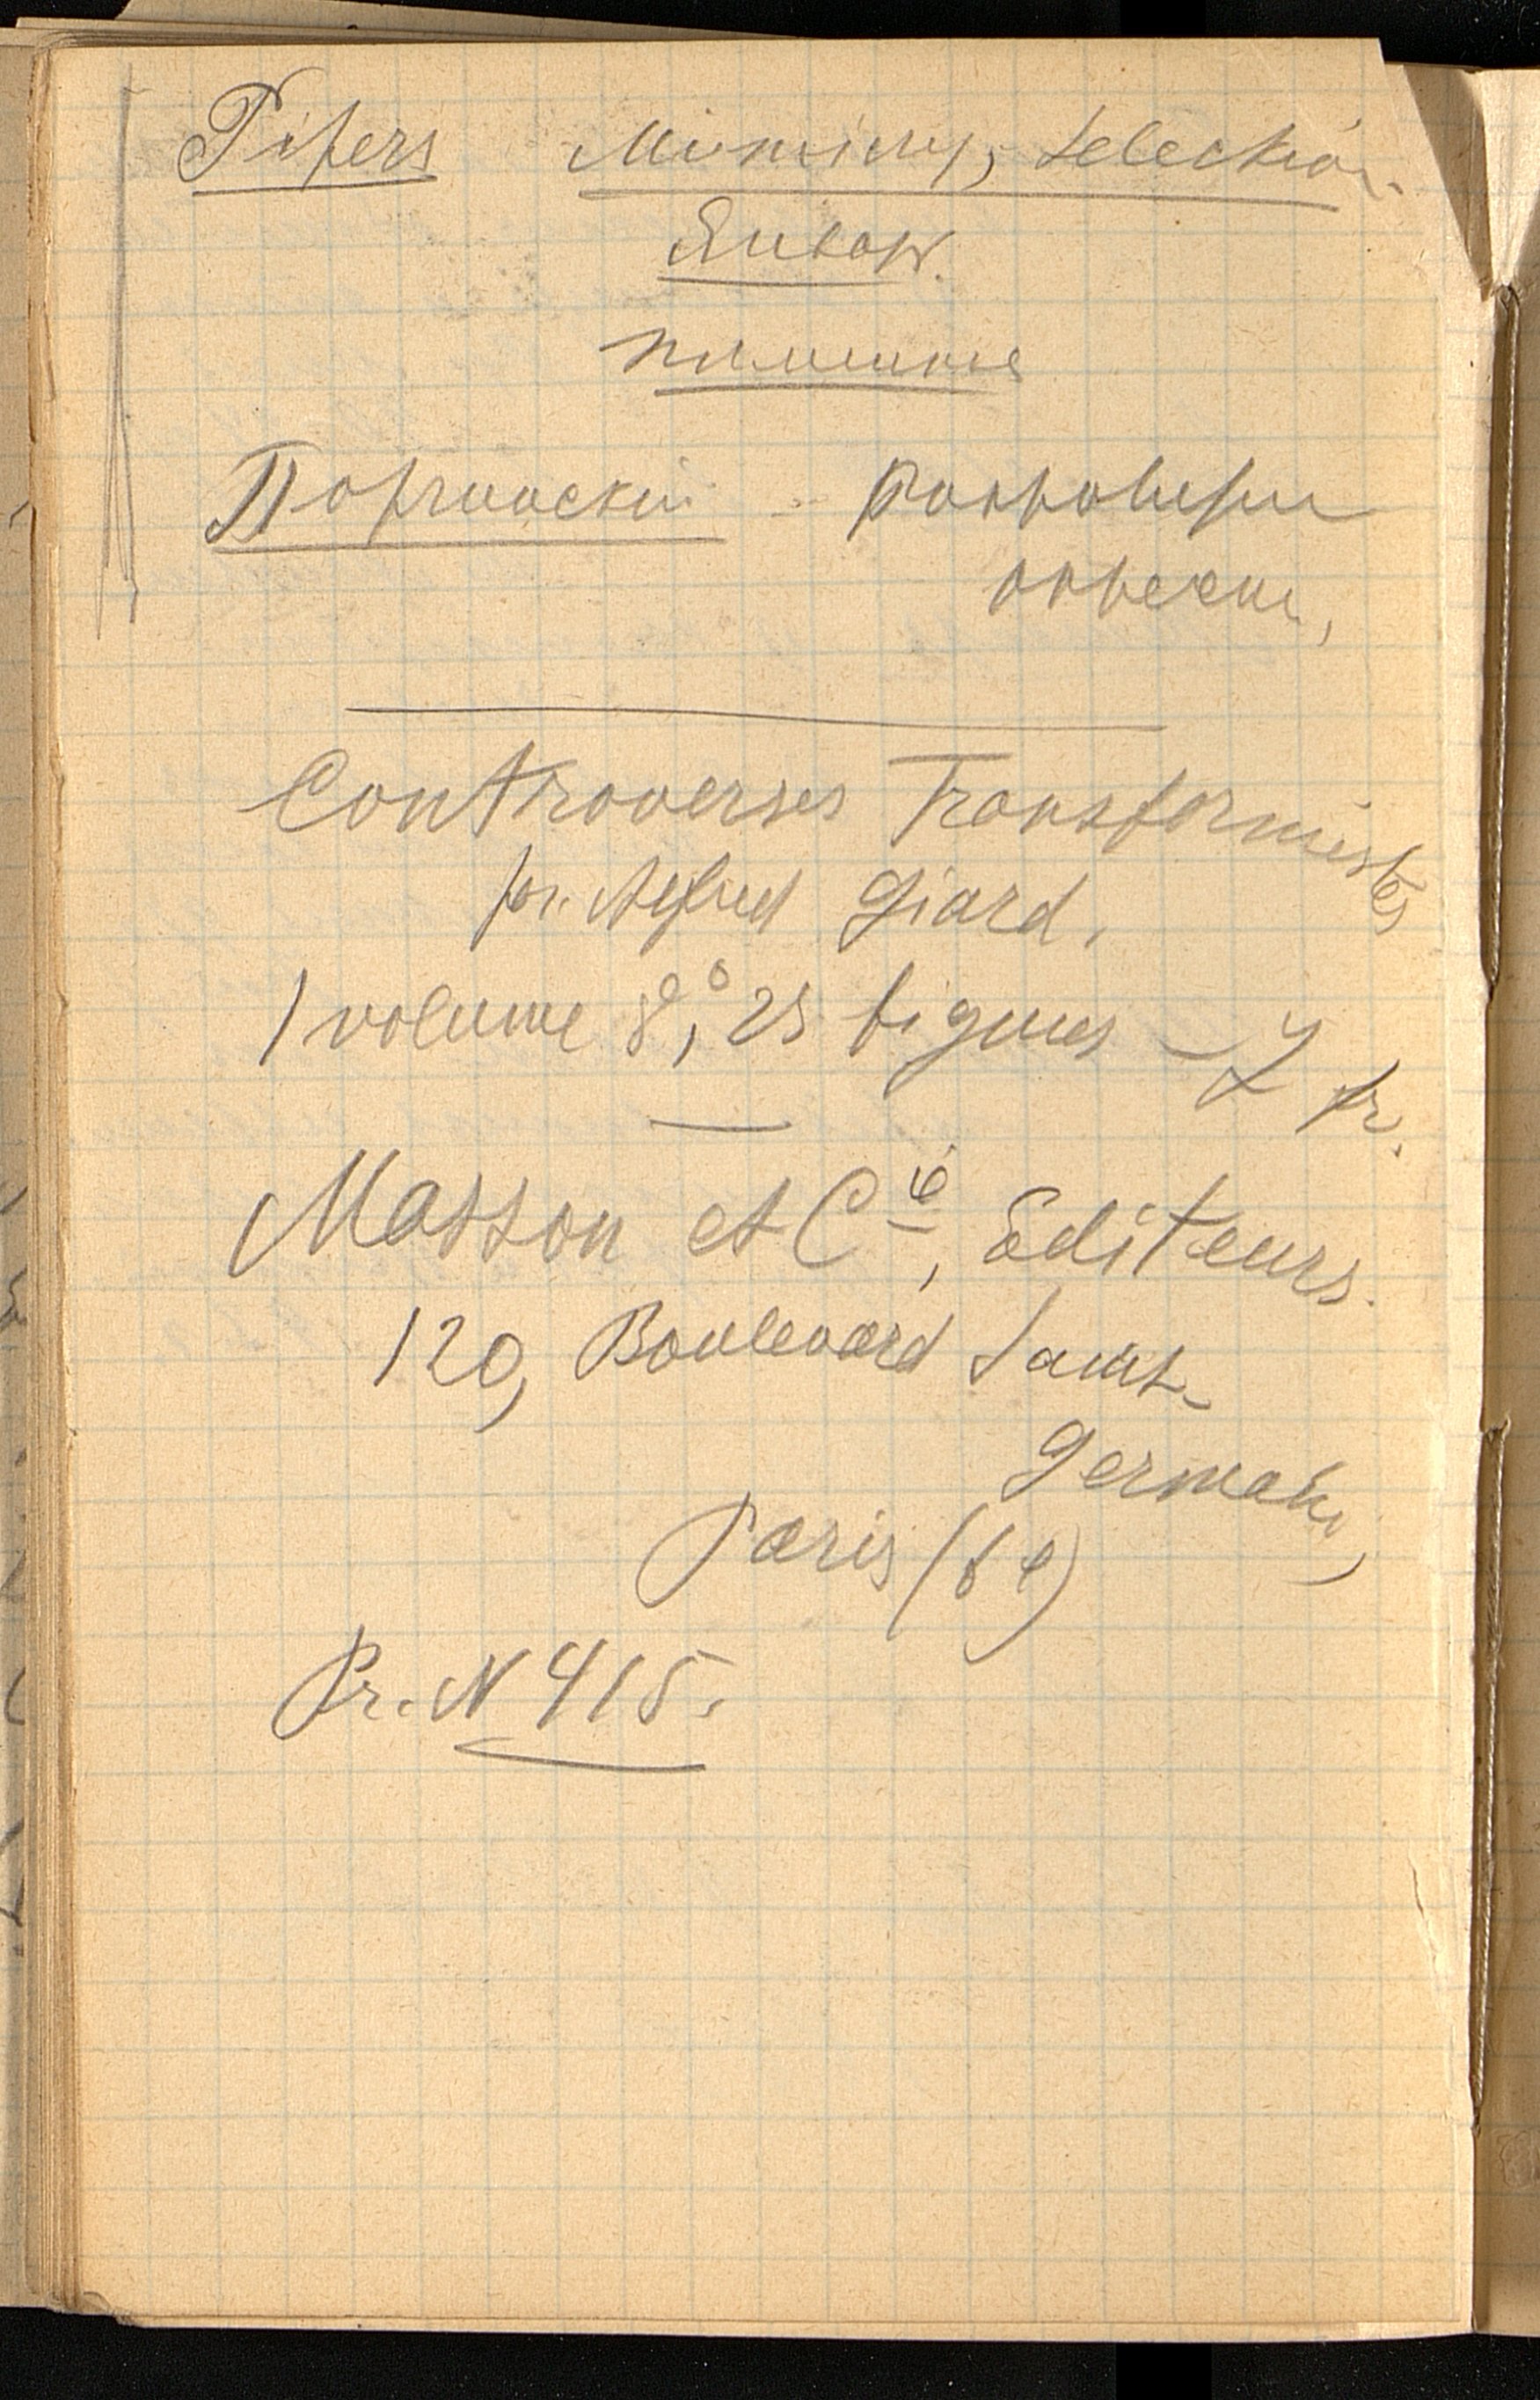 Pifers Mimicry, Selection.
Январ.
Порчинский - Покровитель
окраски,
Controverses Transformistes
par Alfred Giard.
1 volume 8°, 25 figures - 7 fr.
Masson et Cie, Editeurs.
120, Boulevard Saint-
Germain,
Paris (6e)
Pr. N 415.